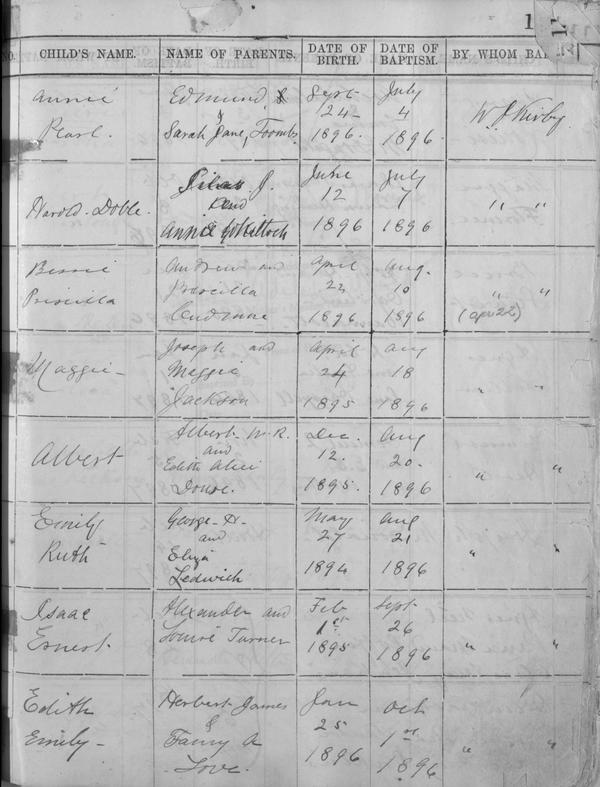 NO. CHILD'S NAME. NAME OF PARENTS. DATE OF BIRTH. DATE OF BAPTISM. BY WHOM BAP
Annie Edmund S Sept July
& 24 4 W J Kirby
Pearl. Sarah Jane, Toombs 1896. 1896
Silas J. June July
Harold Doble. and 12 7 " "
Annie 1896 1896
Bessie Andrew and April Aug.
Priscilla Priscilla 22 10 " "
1896 1896 (apr 22)
Joseph and April Aug
Maggie Maggie 24 18 " "
Jackson 1895 1896
Albert W. R. Dec. Aug
Albert and 12. 20. " "
Edith Alice
1895. 1896
Emily George H. May Aug
and 27 21
Ruth Eliza " "
Ledwich 1894 1896
Isaac Alexander and Feb Sept
Louise Turner 1st 26
Ernest 1895 1896 " "
Edith Herbert James Jan Oct
& 25 1st
Emily Fanny A " "
Love. 1896 1896